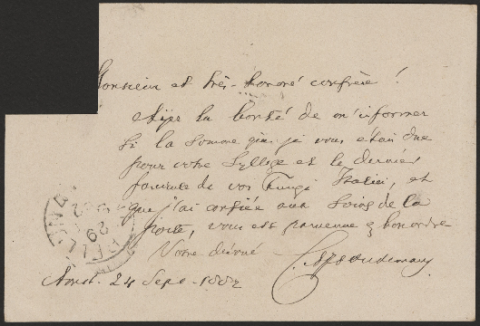 Monsieur et très-honoré confrère!
Ayez la bonté de m'informer
si la somme que je vous étais due
pour votre Sylloge et le dernier
fascicule de vos Fungi Italici, et
que j'ai confiée aux soins de la
poste, vous est parvenue en bon ordre
Votre dévoué
CAJAOudemans
Amst. 24 Sept. 1882